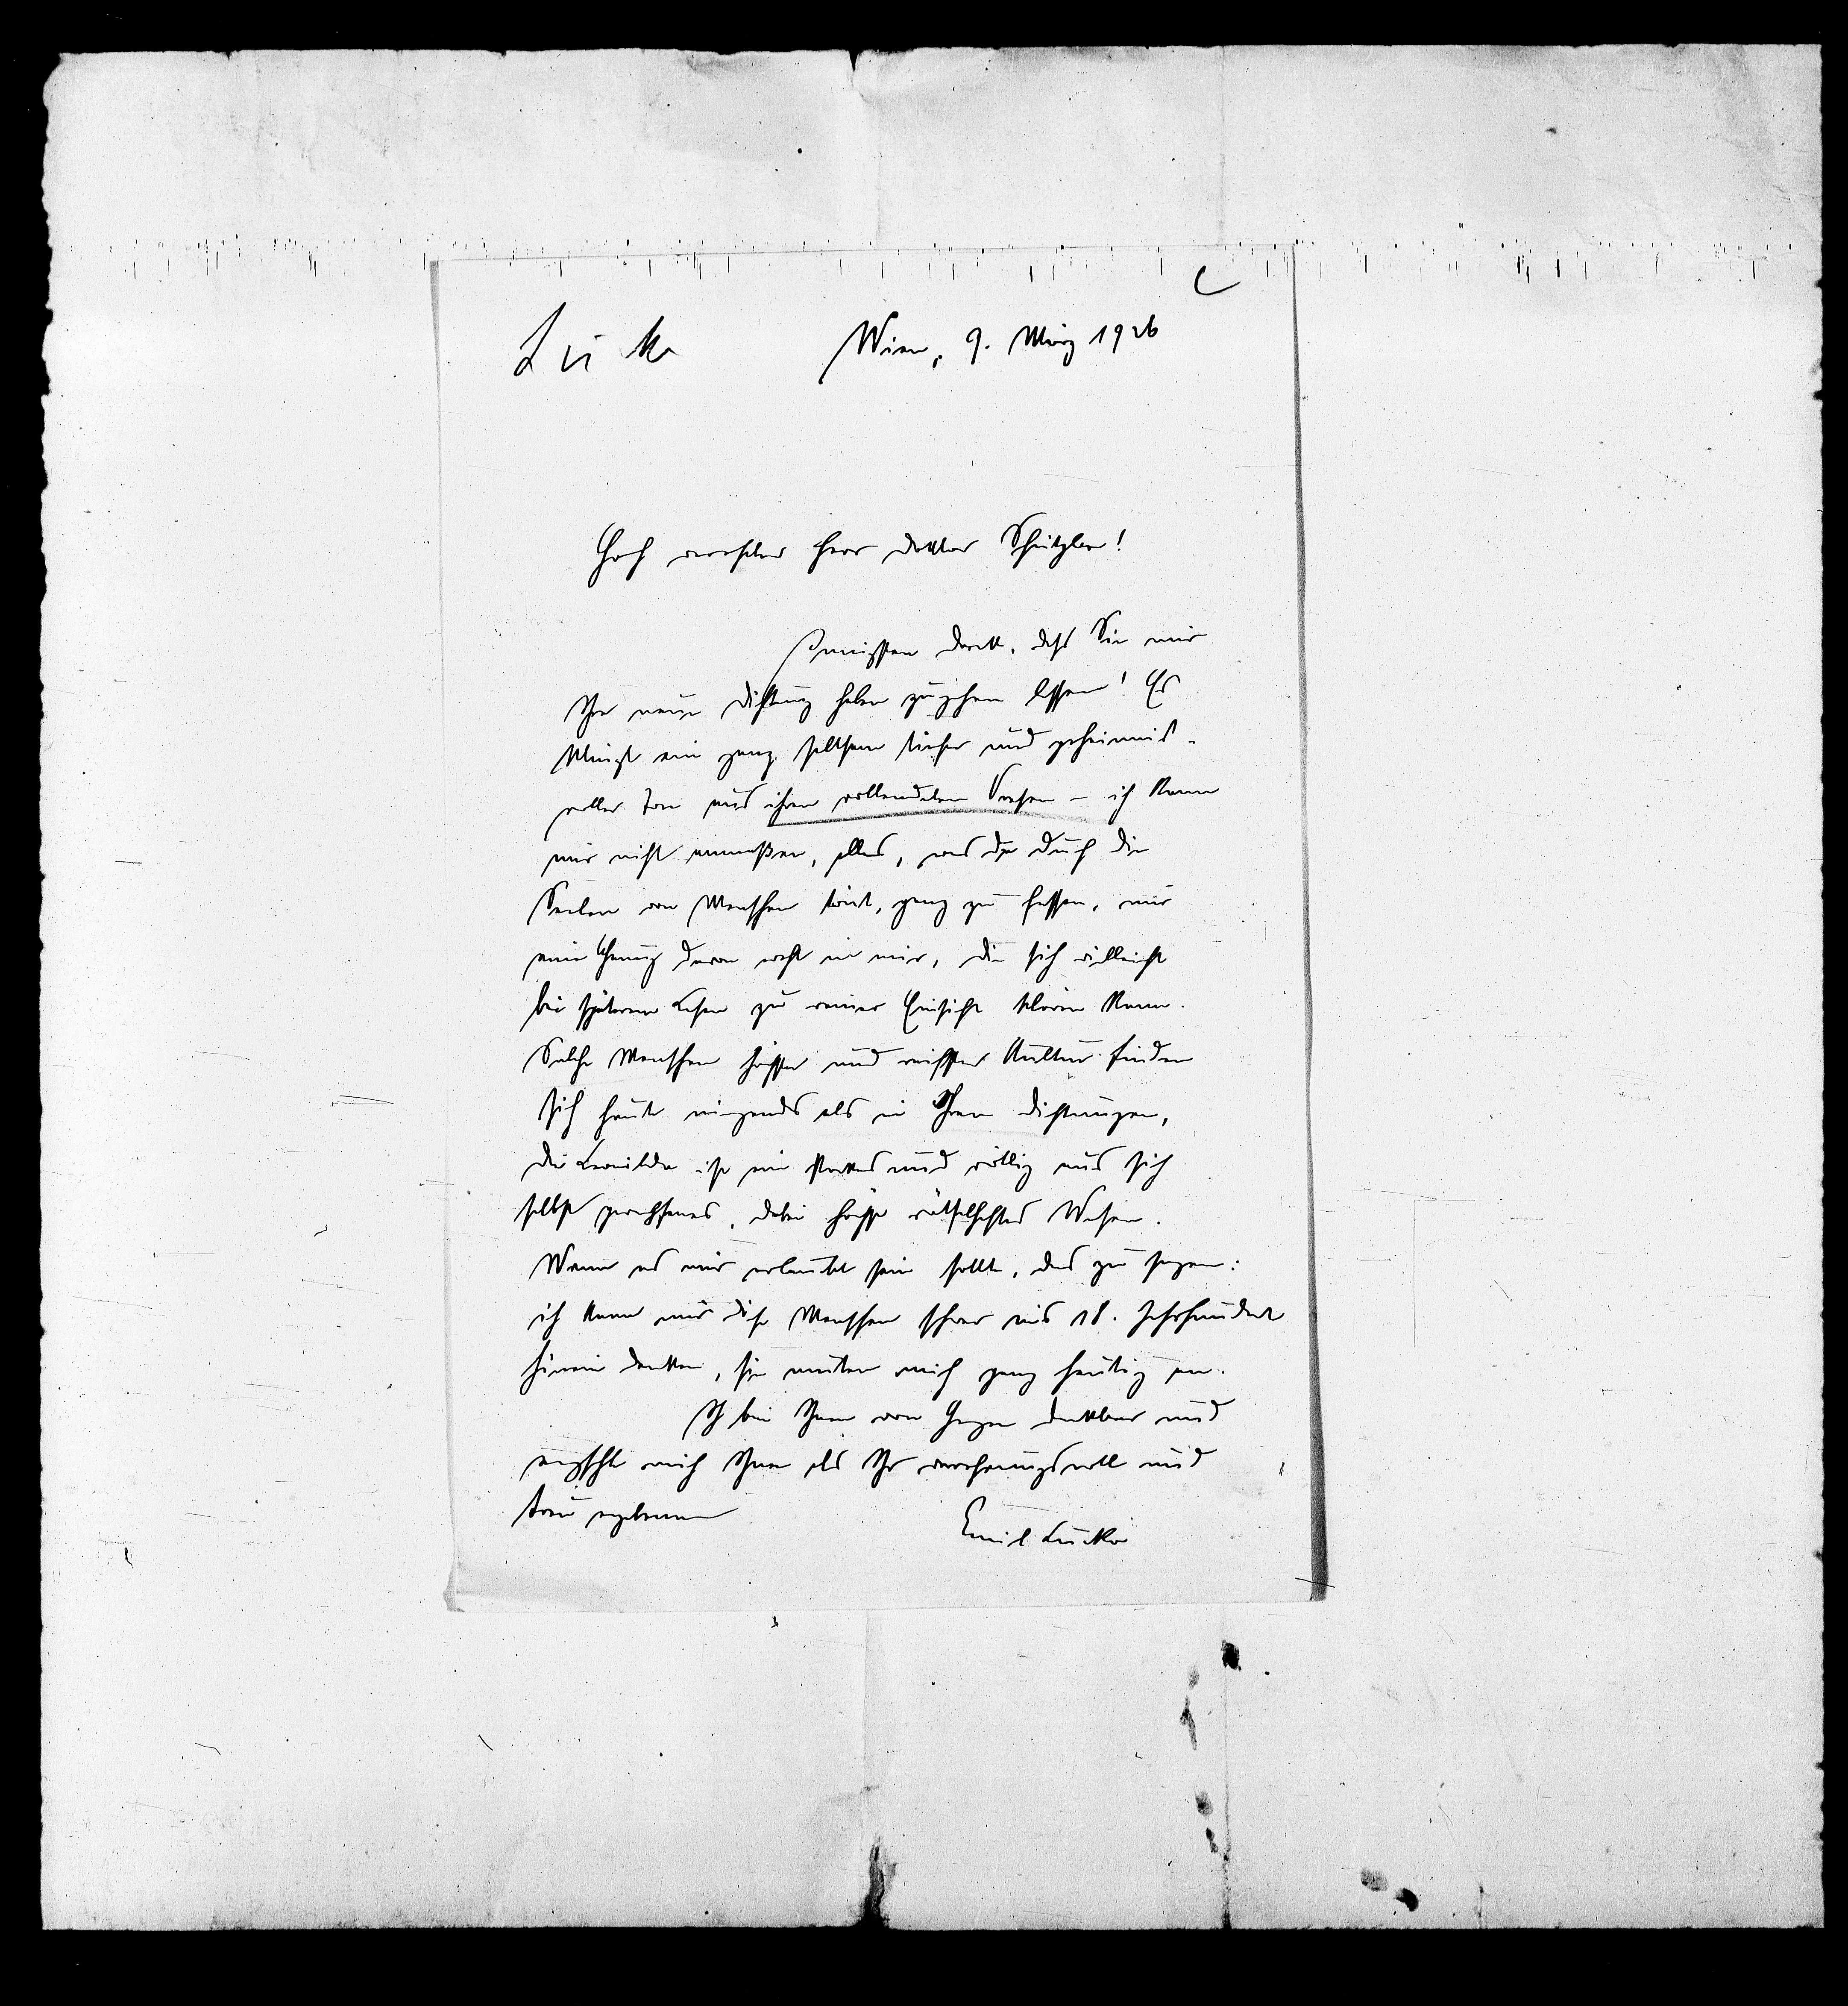 Lucka
Wien, 9. März 1926
Hoch verehrter Herr Doktor Schnitzler!
Innigsten Dank, dass Sie mir
Ihre neue Dichtung haben zugehen lassen! Es
klingt ein ganz seltsam tiefer und geheimnis-
voller Ton aus ihren vollendeten Versen – ich kann
mir nicht anmaßen, alles, was da durch die
Seelen von Menschen tönt, ganz zu fassen, nur
eine Ahnung davon webt in mir, die sich vielleicht
bei späterem Lesen zu reiner Einsicht klären kann.
Solche Menschen höchster und reifster Kultur finden
sich heute nirgends als in Ihren Dichtungen,
die Leonilda ist ein starkes und völlig aus sich
selbst gewachsenes, dabei höchst rätselhaftes Wesen.
Wenn es mir erlaubt sein sollte, das zu sagen:
ich kann mir diese Menschen schwer ins 18. Jahrhundert
hinein denken, sie muten mich ganz heutig an.
Ich bin Ihnen von Herzen dankbar und
empfehle mich Ihnen als Ihr verehrungsvoll und
treu ergebener
Emil Lucka